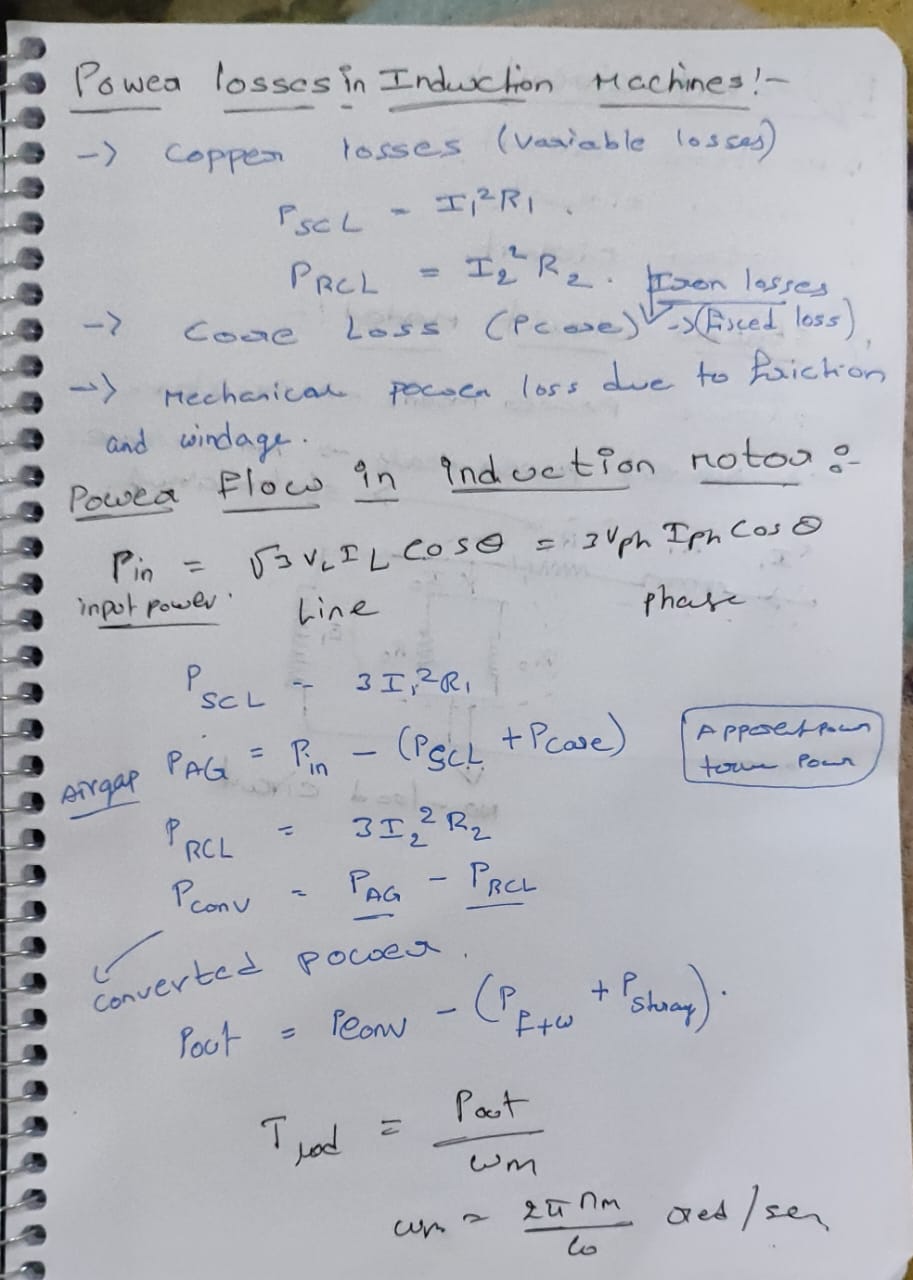 Power losses in Induction Machines:-
-> Copper losses (Variable losses)
P_SCL = I₁²R₁.
P_RCL = I₂²R₂.
Iron losses
-> Core Loss (Pcore) -> (Fixed loss),
-> Mechanical power loss due to friction
and windage.
Power flow in induction motor :-
Pin = √3 V_L I_L Cosθ = 3Vph Iph Cosθ
input power. Line phase
P_SCL = 3I₁²R₁
Airgap P_AG = P_in - (P_SCL + Pcore)
P_RCL = 3I₂²R₂
P_conv = P_AG - P_RCL
Converted power.
Pout = Pconv - (P_f+w + P_stray).
T_load = Pout / ωm
ωm = 2π nm / 60 rad/sec